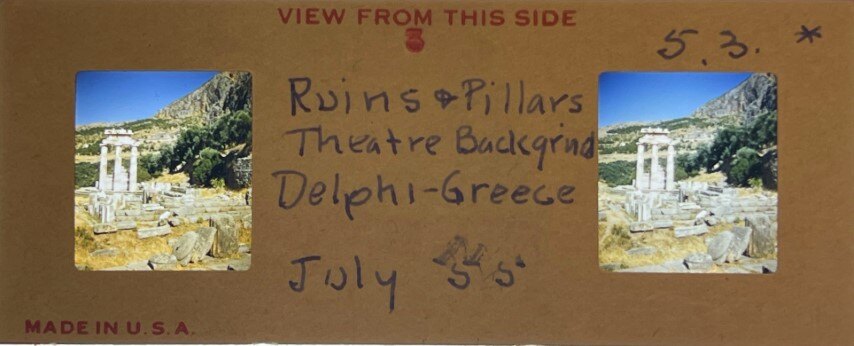 VIEW FROM THIS SIDE
3
5.3. *
Ruins & Pillars
Theatre Backgrind
Delphi-Greece
July 55
MADE IN U.S.A.